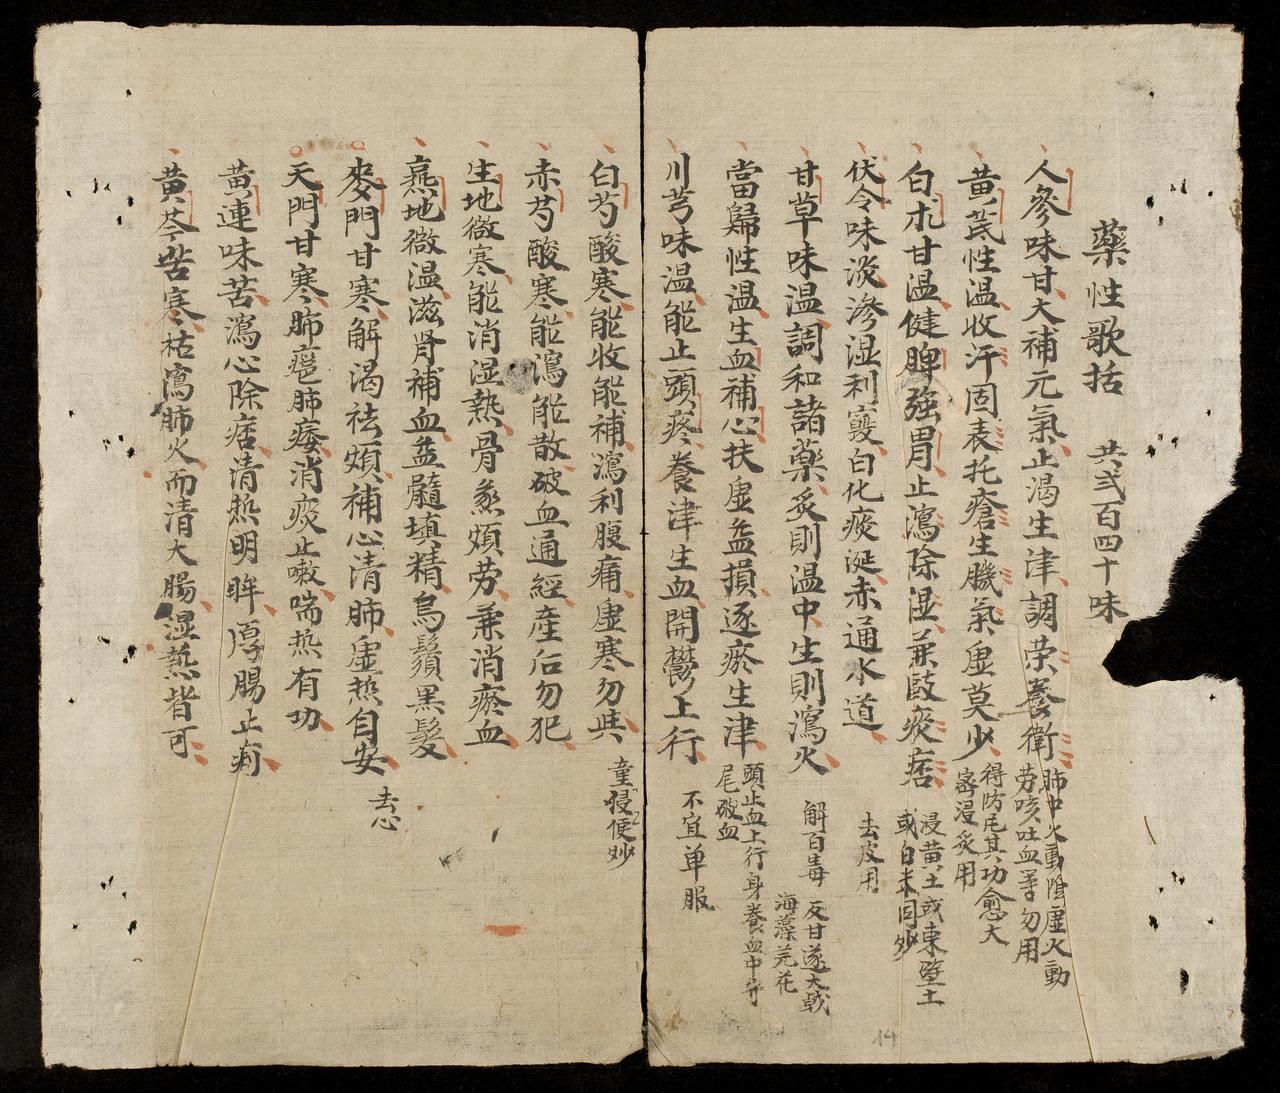 藥性歌括 共弍百四十味
人參味甘大補元氣止渴生津調荣養衛
肺中火動陰虛火動
劳咳吐血等勿用
黄芪性温收汗固表托瘡生肌氣虛莫少
得防芪其功愈大
宻浸炙用
白朮甘温健脾強胃止瀉除湿兼豉痰痞
浸黄土或東壁土
或白米同炒
伏令味淡滲湿利竅白化痰涎赤通水道
去皮用
甘草味温調和諸藥炙則温中生則瀉火
解百毒 反甘遂大戟
海藻芫花
當歸性温生血補心扶虛益損逐瘀生津
頭止血上行身養血中守
尾破血
川芎味温能止頭疼養津生血開鬱上行
不宜单服
白芍酸寒能收能補瀉利腹痛虛寒勿与
童便浸炒
赤芍酸寒能瀉能散破血通經産后勿犯
生地微寒能消湿熱骨蒸煩劳兼消瘀血
熹地微温滋肾補血益髓填精烏鬚黒髮
麥門甘寒解渴祛煩補心清肺虛热自安
去心
天門甘寒肺癰肺痿消痰止嗽喘热有功
黄連味苦瀉心除痞清热明眸厚腸止痢
黄芩苦寒枯瀉肺火而清大腸湿热皆可